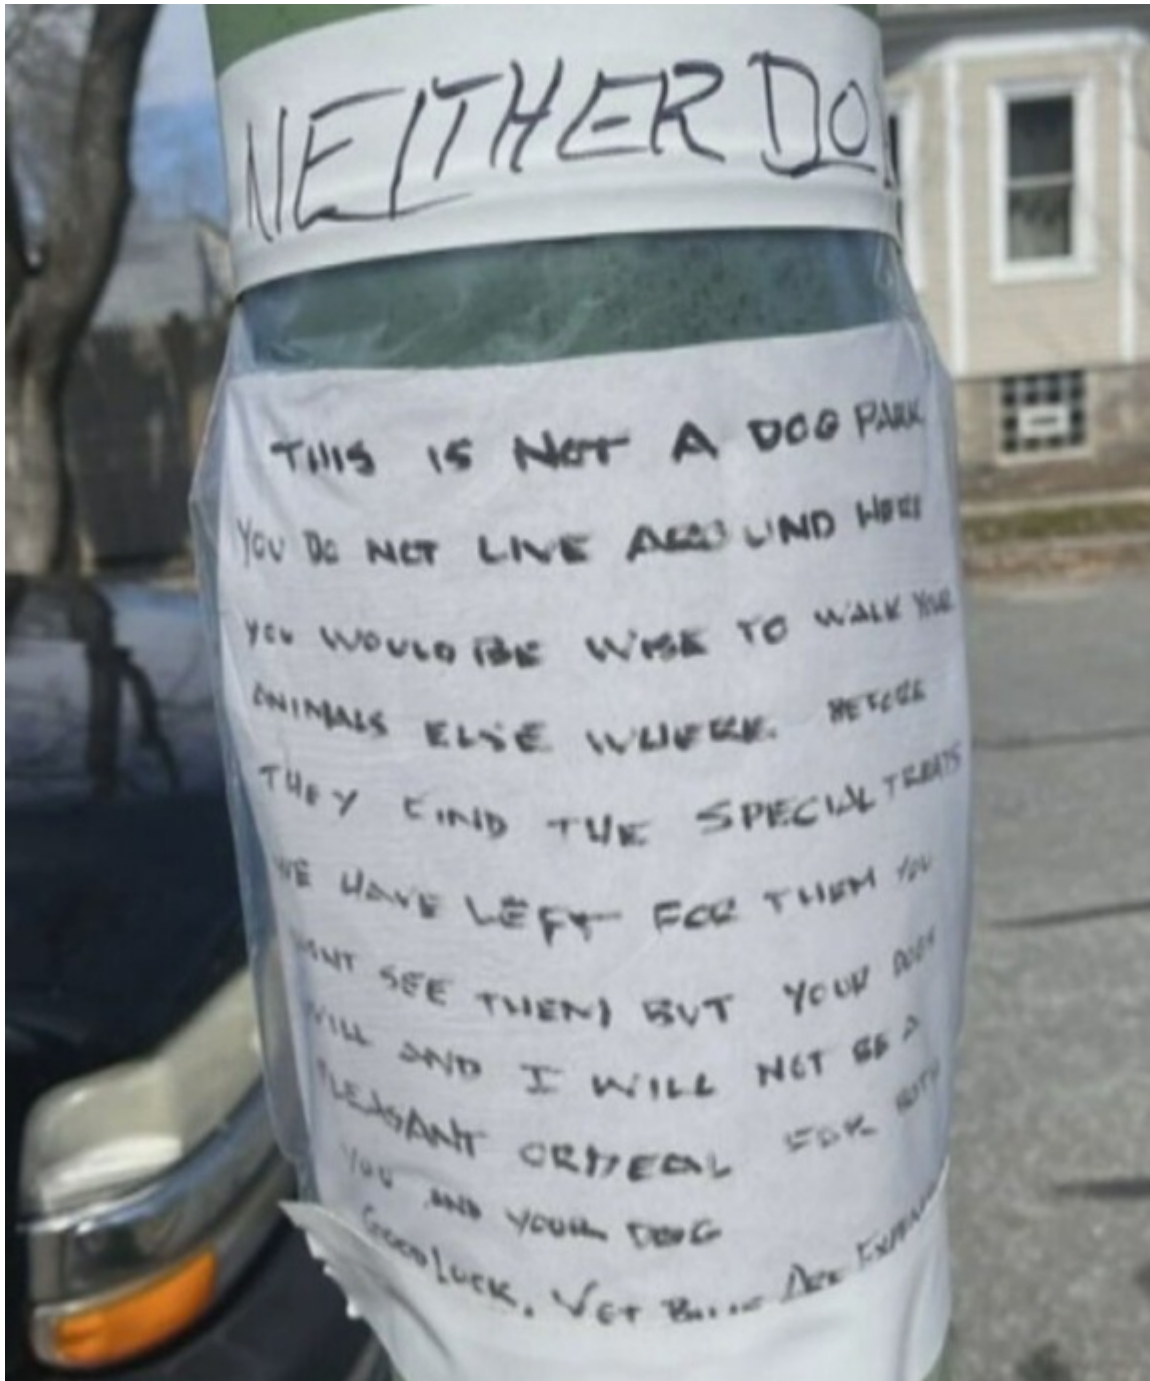 NEITHER DO
THIS IS NOT A DOG PARK
YOU DO NOT LIVE AROUND HERE
YOU WOULD BE WISE TO WALK YOUR
ANIMALS ELSE WHERE. BEFORE
THEY FIND THE SPECIAL TREATS
WE HAVE LEFT FOR THEM YOU
WONT SEE THEM BUT YOUR DOGS
WILL AND I WILL NOT BE A
PLEASANT ORDEAL FOR BOTH
YOU AND YOUR DOG
GOOD LUCK. VET BILLS ARE